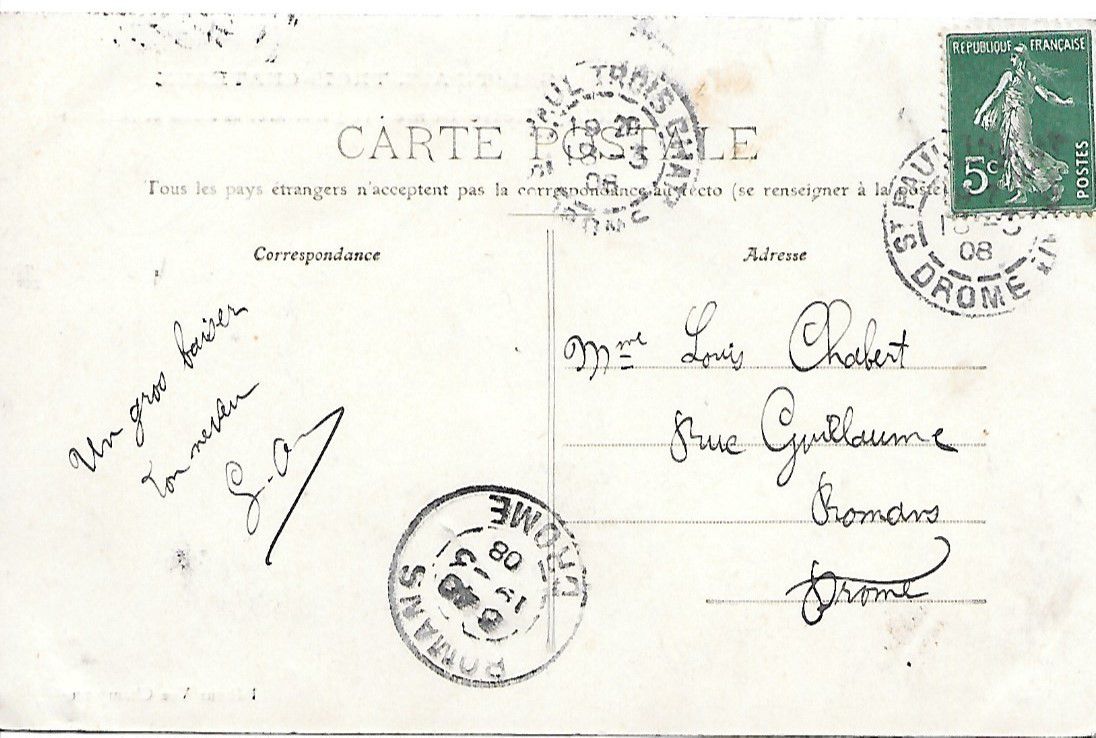 REPUBLIQUE FRANÇAISE
5c POSTES
CARTE POSTALE
Tous les pays étrangers n'acceptent pas la correspondance au recto (se renseigner à la poste)
Correspondance
Adresse
Un gros baiser
Ton neveu
Mme Louis Chabert
Rue Guillaume
Romans
Drome
PAUL TROIS CHAT
18 - 3
ST PAUL
08
DROME
ROMANS
19 - 3
08
DROME